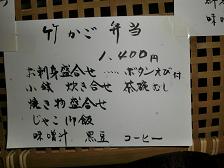 竹かご弁当
1,400円
お刺身盛合せ……ボタンえび付
小鉢 炊き合せ 茶碗むし
焼き物盛合せ
じゃこ御飯
味噌汁 黒豆 コーヒー